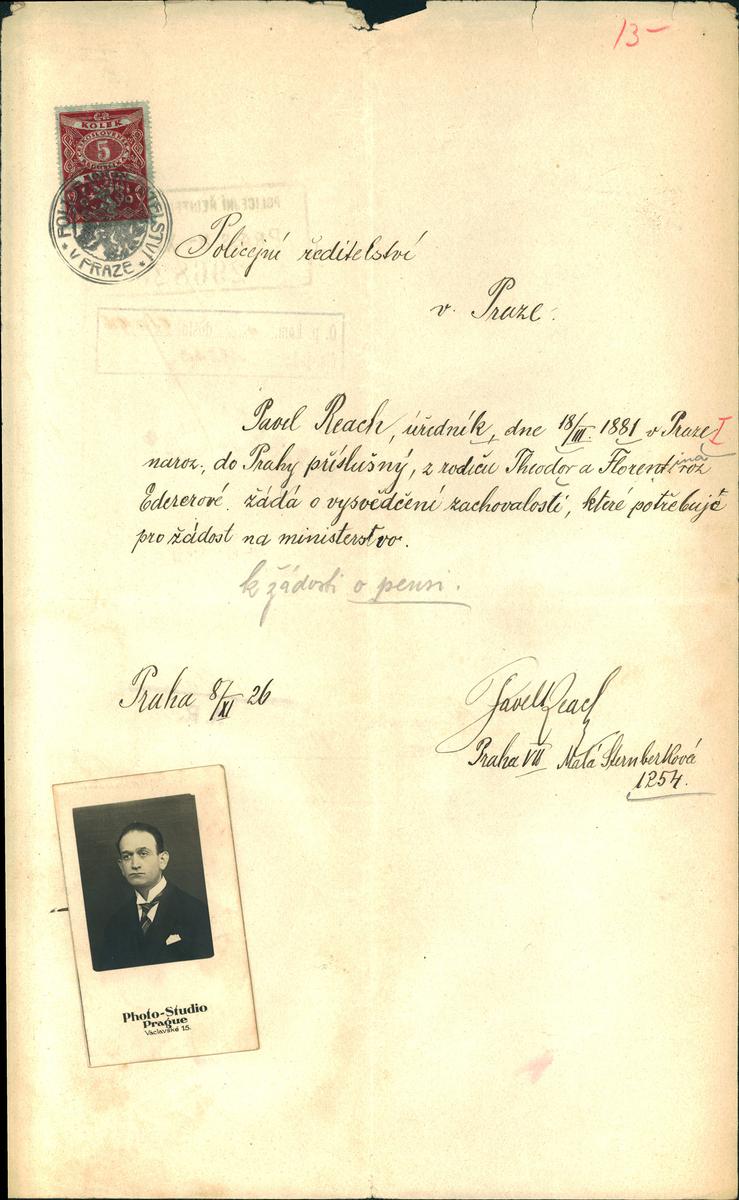 13-
ČR
KOLEK
5
V PRAZE
Policejní ředitelství
v. Praze.
Pavel Reach, úředník, dne 18/III. 1881 v Praze I
naroz., do Prahy příslušný, z rodičů Theodor a Florentina roz
Edererové. žádá o vysvědčení zachovalosti, které potřebuje
pro žádost na ministerstvo.
k žádosti o pensi.
Praha 8/XI 26
Pavel Reach
Praha VII Malá Sternberková
1254.
Photo-Studio
Prague
Václavské 15.